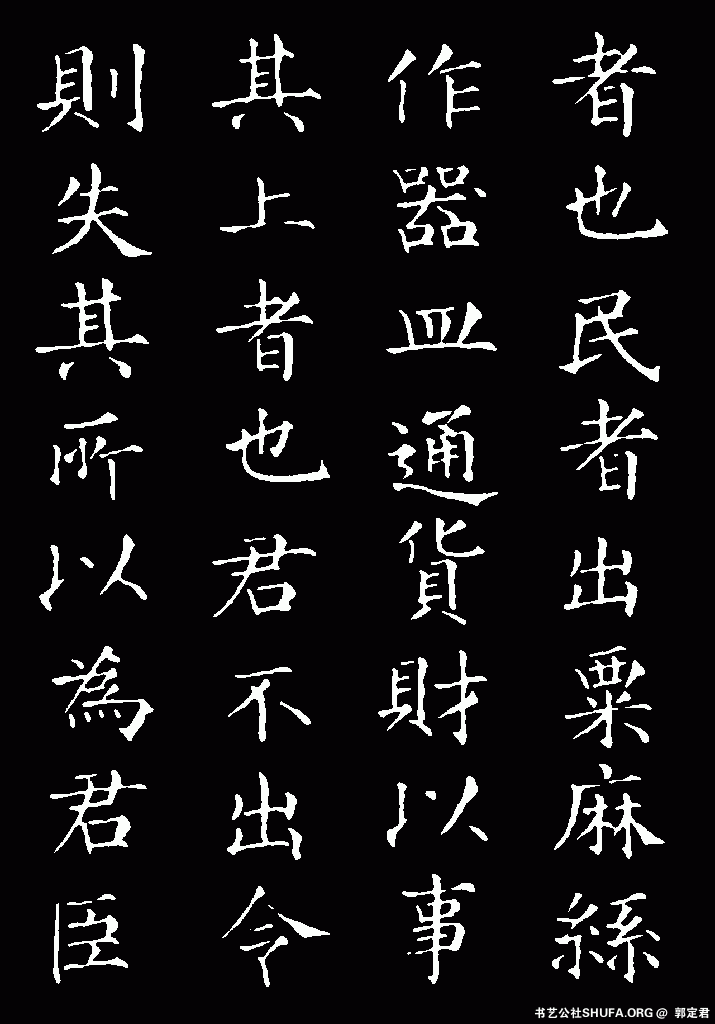 者也民者出粟麻絲
作器皿通貨財以事
其上者也君不出令
則失其所以為君臣
书艺公社SHUFA.ORG @ 郭定君